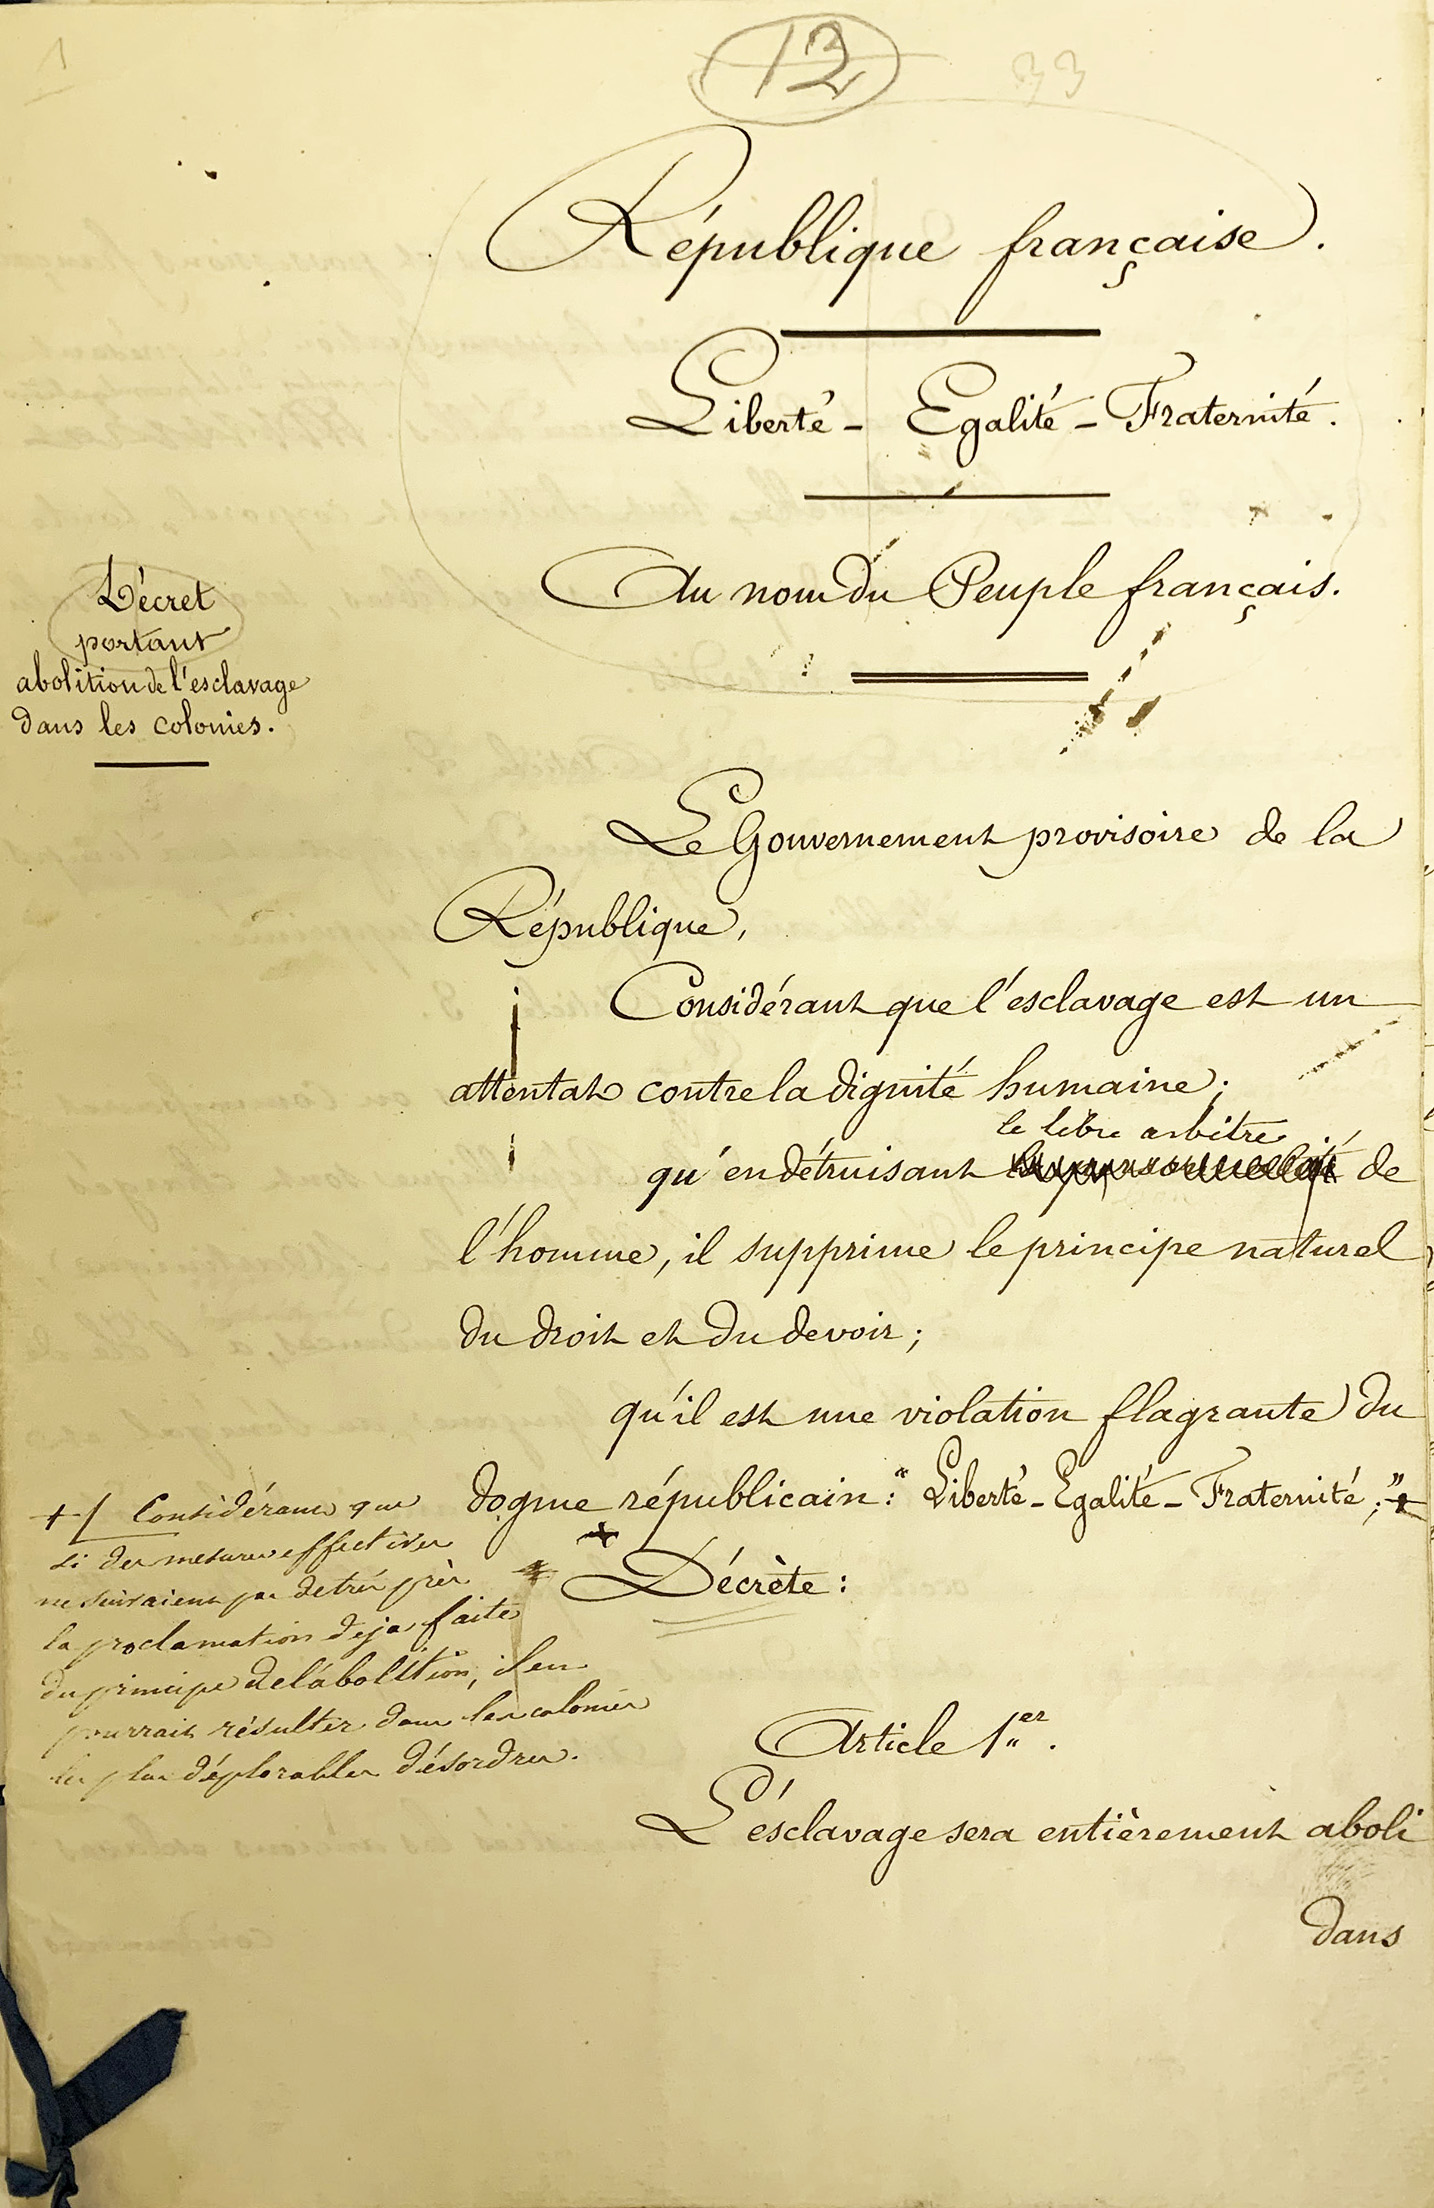 1
12
33
République française.
Liberté - Egalité - Fraternité.
Au nom du Peuple français.
Décret
portant
abolition de l'esclavage
dans les colonies.
Le Gouvernement provisoire de la
République,
Considérant que l'esclavage est un
attentat contre la dignité humaine;
le libre arbitre
qu'en détruisant de
l'homme, il supprime le principe naturel
du droit et du devoir;
qu'il est une violation flagrante du
dogme républicain: "Liberté - Egalité - Fraternité;" +
+ / Considérant que
si des mesures effectives
ne suivaient pas de très près
la proclamation déja faite
du principe de l'abolition, il en
pourrait résulter dans les colonies
les plus déplorables désordres.
Décrète:
Article 1er.
L'esclavage sera entièrement aboli
dans